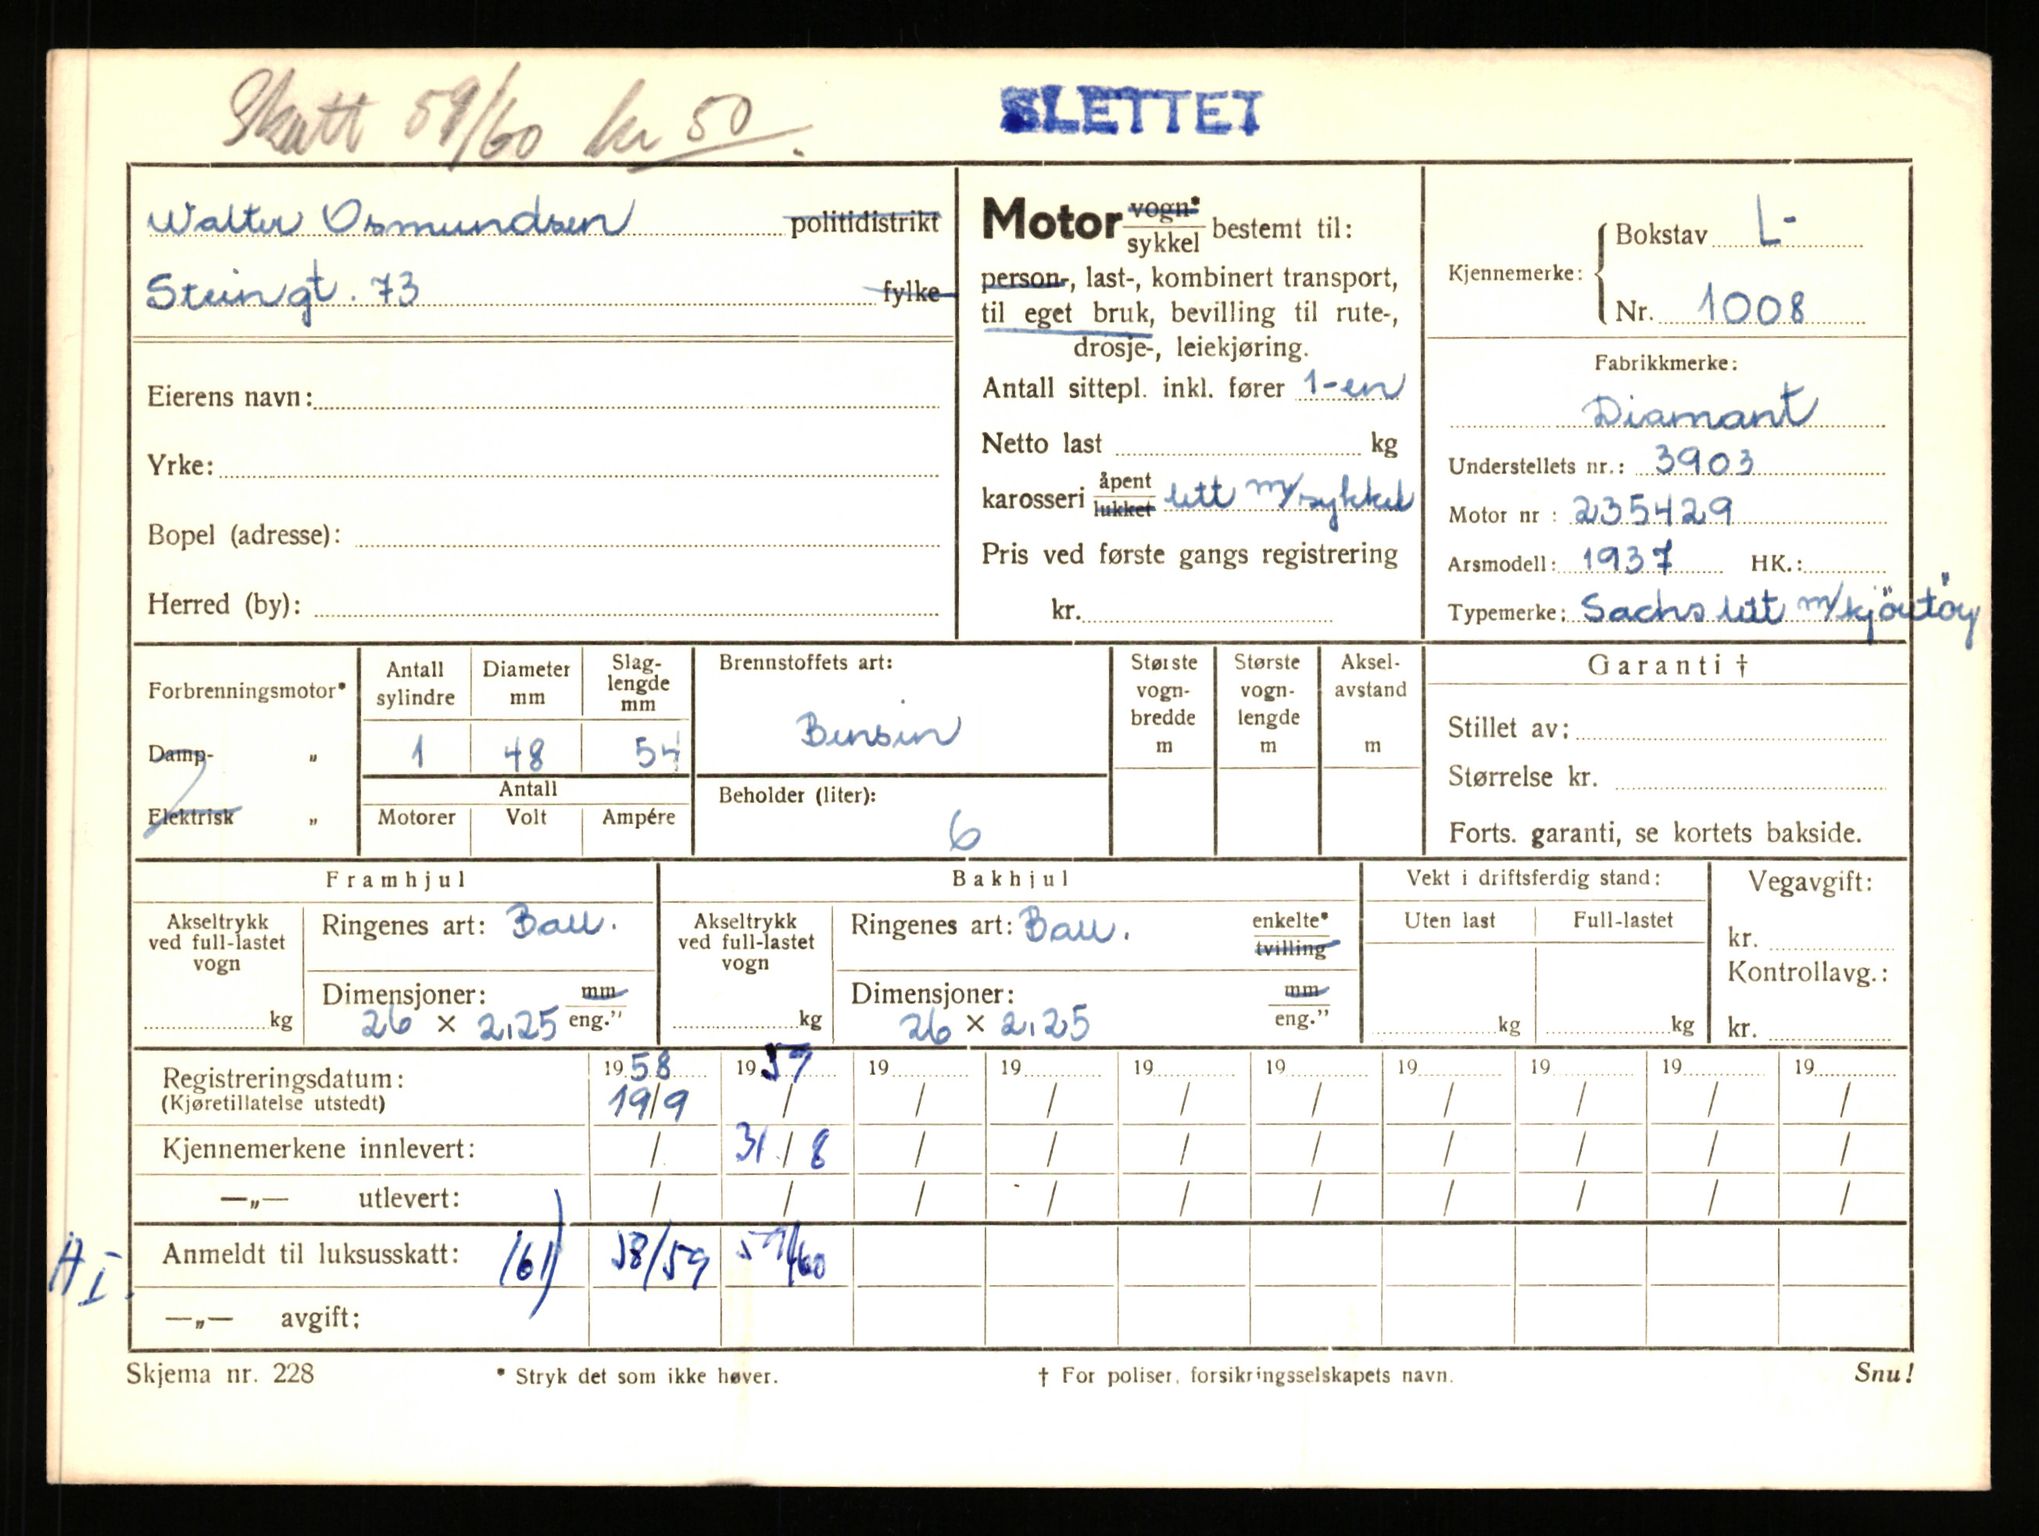 Skatt 59/60 kr 50.
SLETTET
Walter Osmundsen politidistrikt
Steingt. 73 fylke
Eierens navn:
Yrke:
Bopel (adresse):
Herred (by):
Motor vogn* sykkel bestemt til:
person-, last-, kombinert transport,
til eget bruk, bevilling til rute-,
drosje-, leiekjøring.
Antall sittepl. inkl. fører 1-en
Netto last kg
karosseri åpent lukket lett m/sykkel
Pris ved første gangs registrering
kr.
Kjennemerke: Bokstav L-
Nr. 1008
Fabrikkmerke:
Diamant
Understellets nr.: 3903
Motor nr : 235429
Arsmodell: 1937 HK.:
Typemerke: Sachs lett m/kjörtöy
Forbrenningsmotor*
Damp- „
Elektrisk „
Antall sylindre
Diameter mm
Slag-lengde mm
1 48 54
Antall
Motorer Volt Ampére
Brennstoffets art:
Bensin
Beholder (liter):
6
Største vogn-bredde m
Største vogn-lengde m
Aksel-avstand m
Garanti †
Stillet av:
Størrelse kr.
Forts. garanti, se kortets bakside.
Framhjul
Akseltrykk ved full-lastet vogn
kg
Ringenes art: Ball.
Dimensjoner: mm
26 x 2,25 eng."
Bakhjul
Akseltrykk ved full-lastet vogn
kg
Ringenes art: Ball. enkelte* tvilling
Dimensjoner: mm
26 x 2,25 eng."
Vekt i driftsferdig stand:
Uten last Full-lastet
kg kg
Vegavgift:
kr.
Kontrollavg.:
kr.
Registreringsdatum: 1958 1959 19 19 19 19 19 19 19 19
(Kjøretillatelse utstedt) 19/9 / / / / / / / / /
Kjennemerkene innlevert: / 31/8 / / / / / / / /
—„— utlevert: / / / / / / / / / /
H I.
Anmeldt til luksusskatt: (61) 58/59 59/60
—„— avgift:
Skjema nr. 228 * Stryk det som ikke høver. † For poliser, forsikringsselskapets navn. Snu!